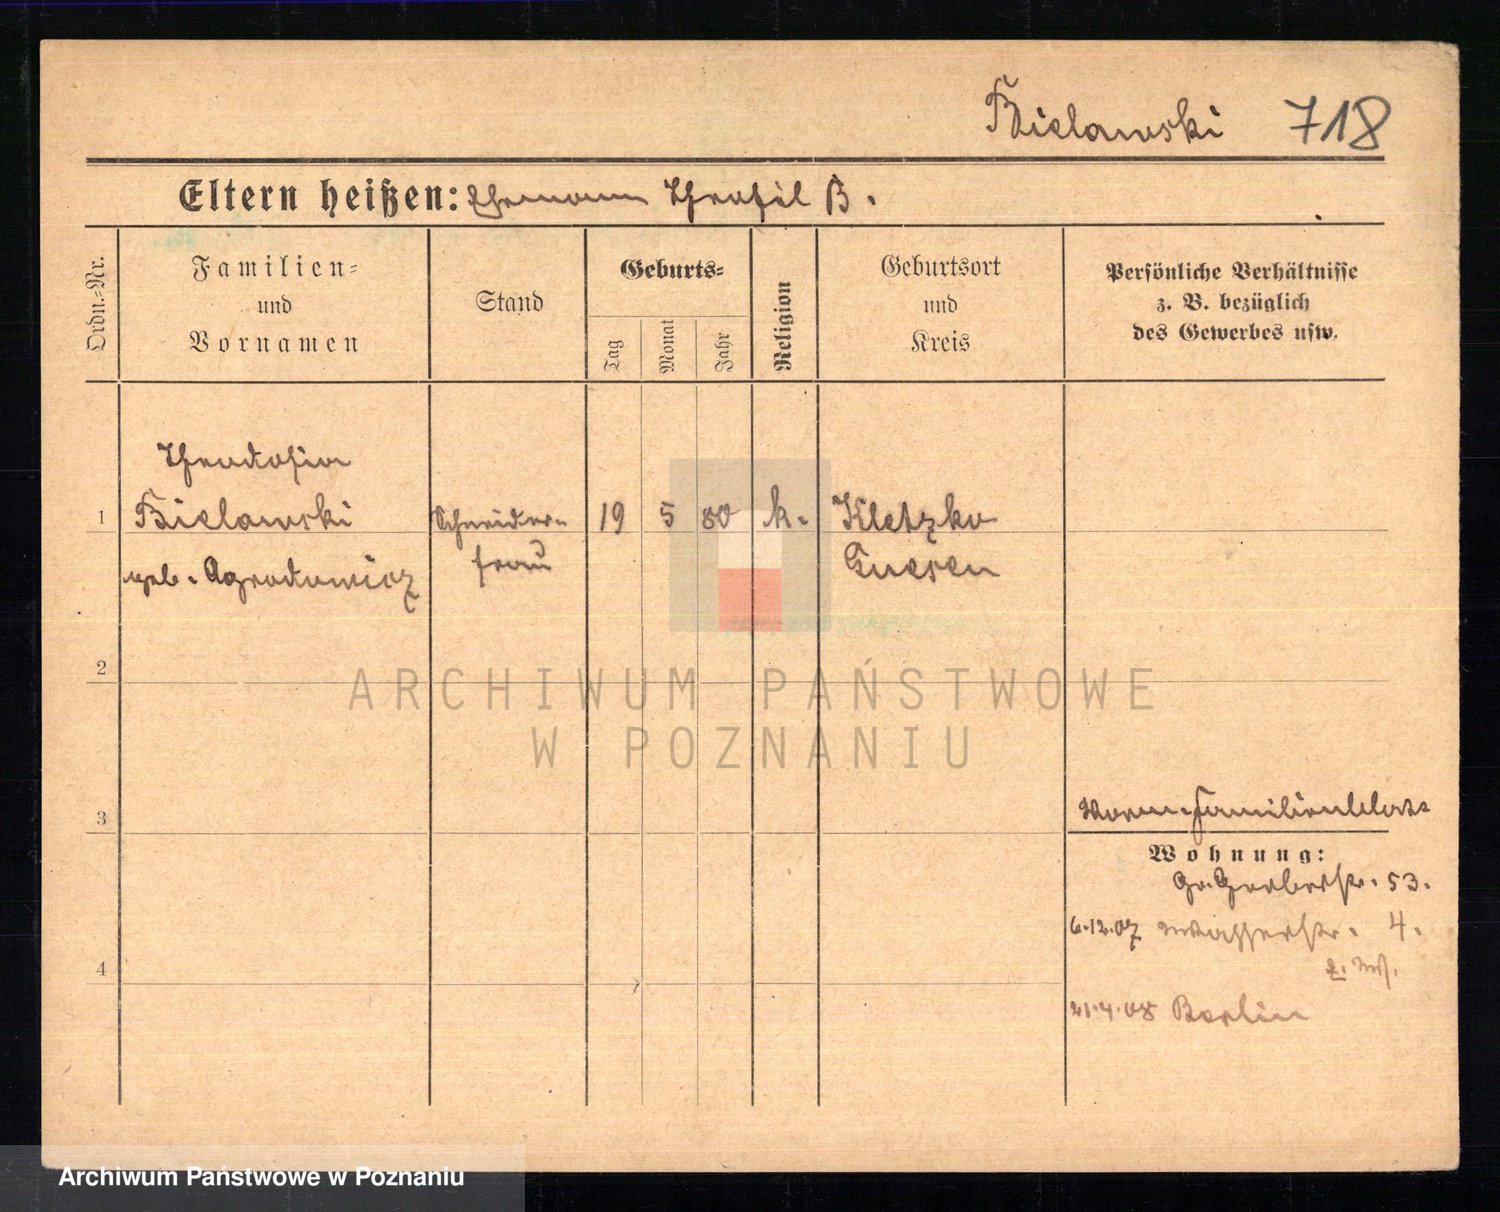 Bielawski 718
Eltern heißen: Ehemann Theofil B.
Ordn.-Nr.
Familien-
und
Vornamen
Stand
Geburts-
Tag
Monat
Jahr
Religion
Geburtsort
und
Kreis
Persönliche Verhältnisse
z. B. bezüglich
des Gewerbes usw.
Theodosia
1 Bielawski Schneider- 19 5 80 k. Kletzko
geb. Agrodowicz frau Gnesen
2
ARCHIWUM PAŃSTWOWE
W POZNANIU
3
Familienblatt
Wohnung:
Gr. Gerberstr. 53.
6.12.07 Wasserstr. 4.
4
21.4.08 Berlin
Archiwum Państwowe w Poznaniu